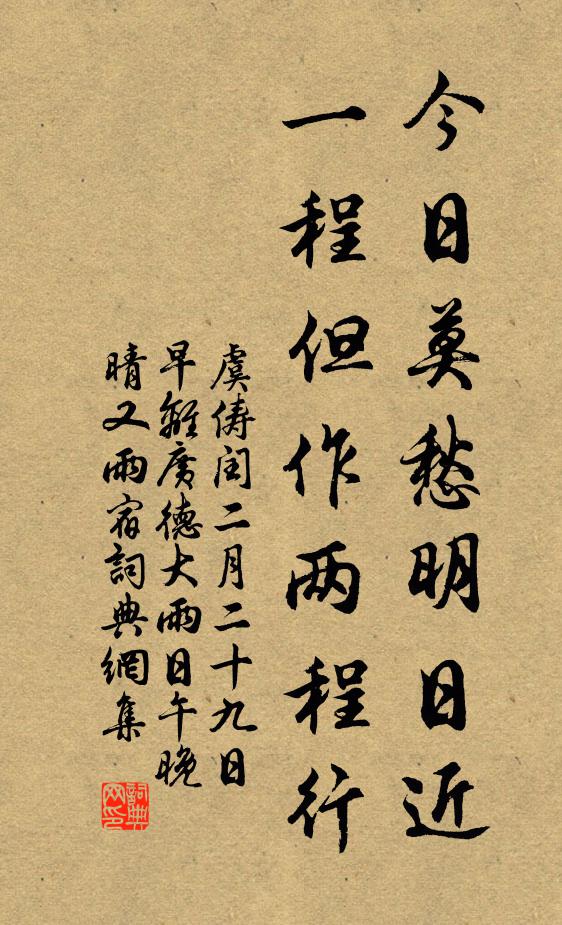 今日莫愁明日近
一程但作两程行
虞俦闰二月二十九日
早離廣德大雨日午晚
晴又雨宿詞典網集
詞典网印